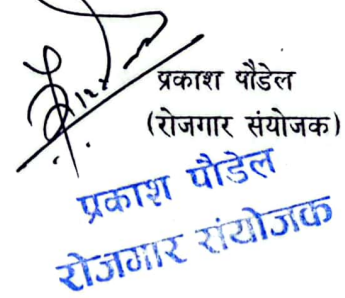 प्रकाश पौडेल
(रोजगार संयोजक)
प्रकाश पौडेल
रोजगार संयोजक